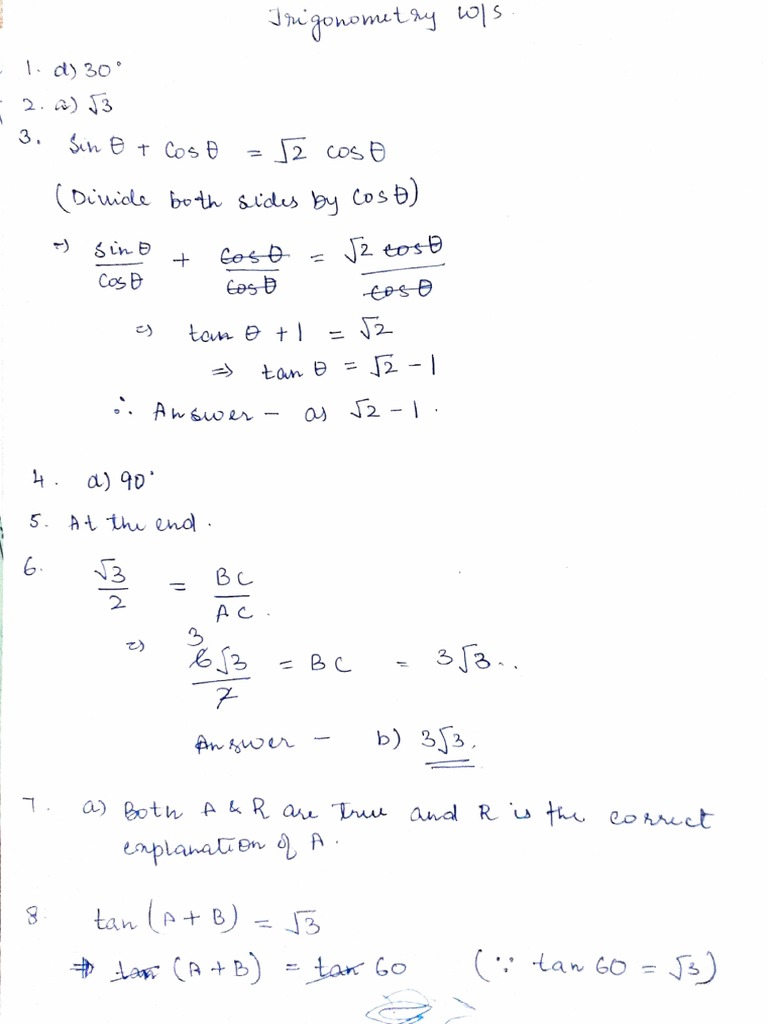 Trigonometry W/S.
1. d) 30°
2. a) √3
3. Sin θ + Cos θ = √2 cos θ
(Divide both sides by Cos θ)
=) Sin θ/Cos θ + Cos θ/Cos θ = √2 cos θ/cos θ
=) tan θ + 1 = √2
=> tan θ = √2 - 1
∴ Answer - a) √2 - 1.
4. d) 90°
5. At the end.
6. √3/2 = BC/AC.
=) 3 6√3/2 = BC = 3√3..
Answer - b) 3√3.
7. a) Both A & R are True and R is the correct
explanation of A.
8. tan (A + B) = √3
=> tan (A + B) = tan 60 (∵ tan 60 = √3)